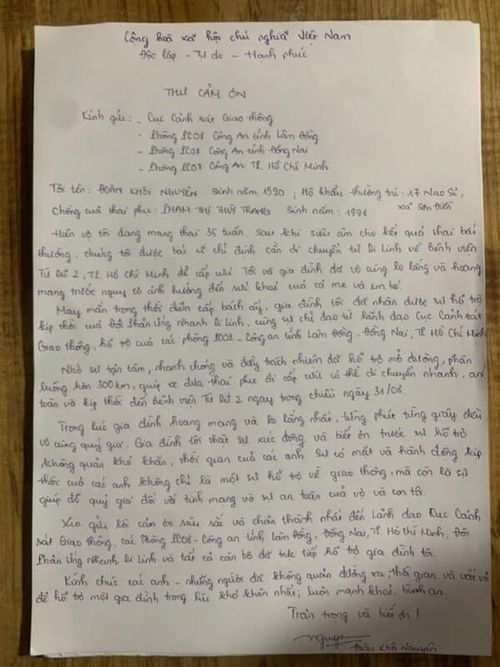 Cộng hoà xã hội chủ nghĩa Việt Nam
Độc lập - Tự do - Hạnh phúc
THƯ CẢM ƠN
Kính gửi: - Cục Cảnh sát Giao thông
- Phòng PC08 Công An tỉnh Lâm Đồng
- Phòng PC08 Công An tỉnh Đồng Nai
- Phòng PC08 Công An TP. Hồ Chí Minh
Tôi tên: ĐOÀN KHÔI NGUYÊN Sinh năm 1990, Hộ khẩu thường trú: 17
Chồng của thai phụ: PHẠM THỊ THUỲ TRANG Sinh năm: 1996 xã Sơn Điền
Hiện vợ tôi đang mang thai 35 tuần, sau khi siêu âm cho kết quả thai bất
thường, chúng tôi được bác sĩ chỉ định cần di chuyển từ Di Linh về Bệnh viện
Từ Dũ 2, TP. Hồ Chí Minh để cấp cứu. Tôi và gia đình đã vô cùng lo lắng và hoang
mang trước nguy cơ ảnh hưởng đến sức khoẻ của cả mẹ và em bé!
May mắn trong thời điểm cấp bách ấy, gia đình tôi đã nhận được sự hỗ trợ
kịp thời của Đội Phản Ứng Nhanh Di Linh, cùng sự chỉ đạo từ lãnh đạo Cục Cảnh sát
Giao thông, hỗ trợ của các phòng PC08 - Công an tỉnh Lâm Đồng, Đồng Nai, TP Hồ Chí Minh
Nhờ sự tận tâm, nhanh chóng và đầy trách nhiệm đã hỗ trợ mở đường, phân
luồng hơn 300km, giúp xe đưa thai phụ đi cấp cứu có thể di chuyển nhanh, an
toàn và kịp thời đến bệnh viện Từ Dũ 2 ngay trong chiều ngày 31/08
Trong lúc gia đình hoang mang và lo lắng nhất, từng phút từng giây đều
vô cùng quý giá. Gia đình tôi thật sự xúc động và biết ơn trước sự hỗ trợ
không quản khó khăn, thời gian của các anh. Sự có mặt và hành động kịp
thời của các anh không chỉ là một sự hỗ trợ về giao thông, mà còn là sự
giúp đỡ quý giá đối với tính mạng và sự an toàn của vợ và con tôi.
Xin gửi lời cảm ơn sâu sắc và chân thành nhất đến Lãnh đạo Cục Cảnh
sát Giao thông, các Phòng PC08 - Công an tỉnh Lâm Đồng, Đồng Nai, TP Hồ Chí Minh, Đội
Phản Ứng Nhanh Di Linh và tất cả cán bộ đã trực tiếp hỗ trợ gia đình tôi.
Kính chúc các anh - những người đã không quản đường xa, thời gian và vất vả
để hỗ trợ một gia đình trong lúc khó khăn nhất, luôn mạnh khoẻ, bình an.
Trân trọng và biết ơn!
Nguyên
Đoàn Khôi Nguyên